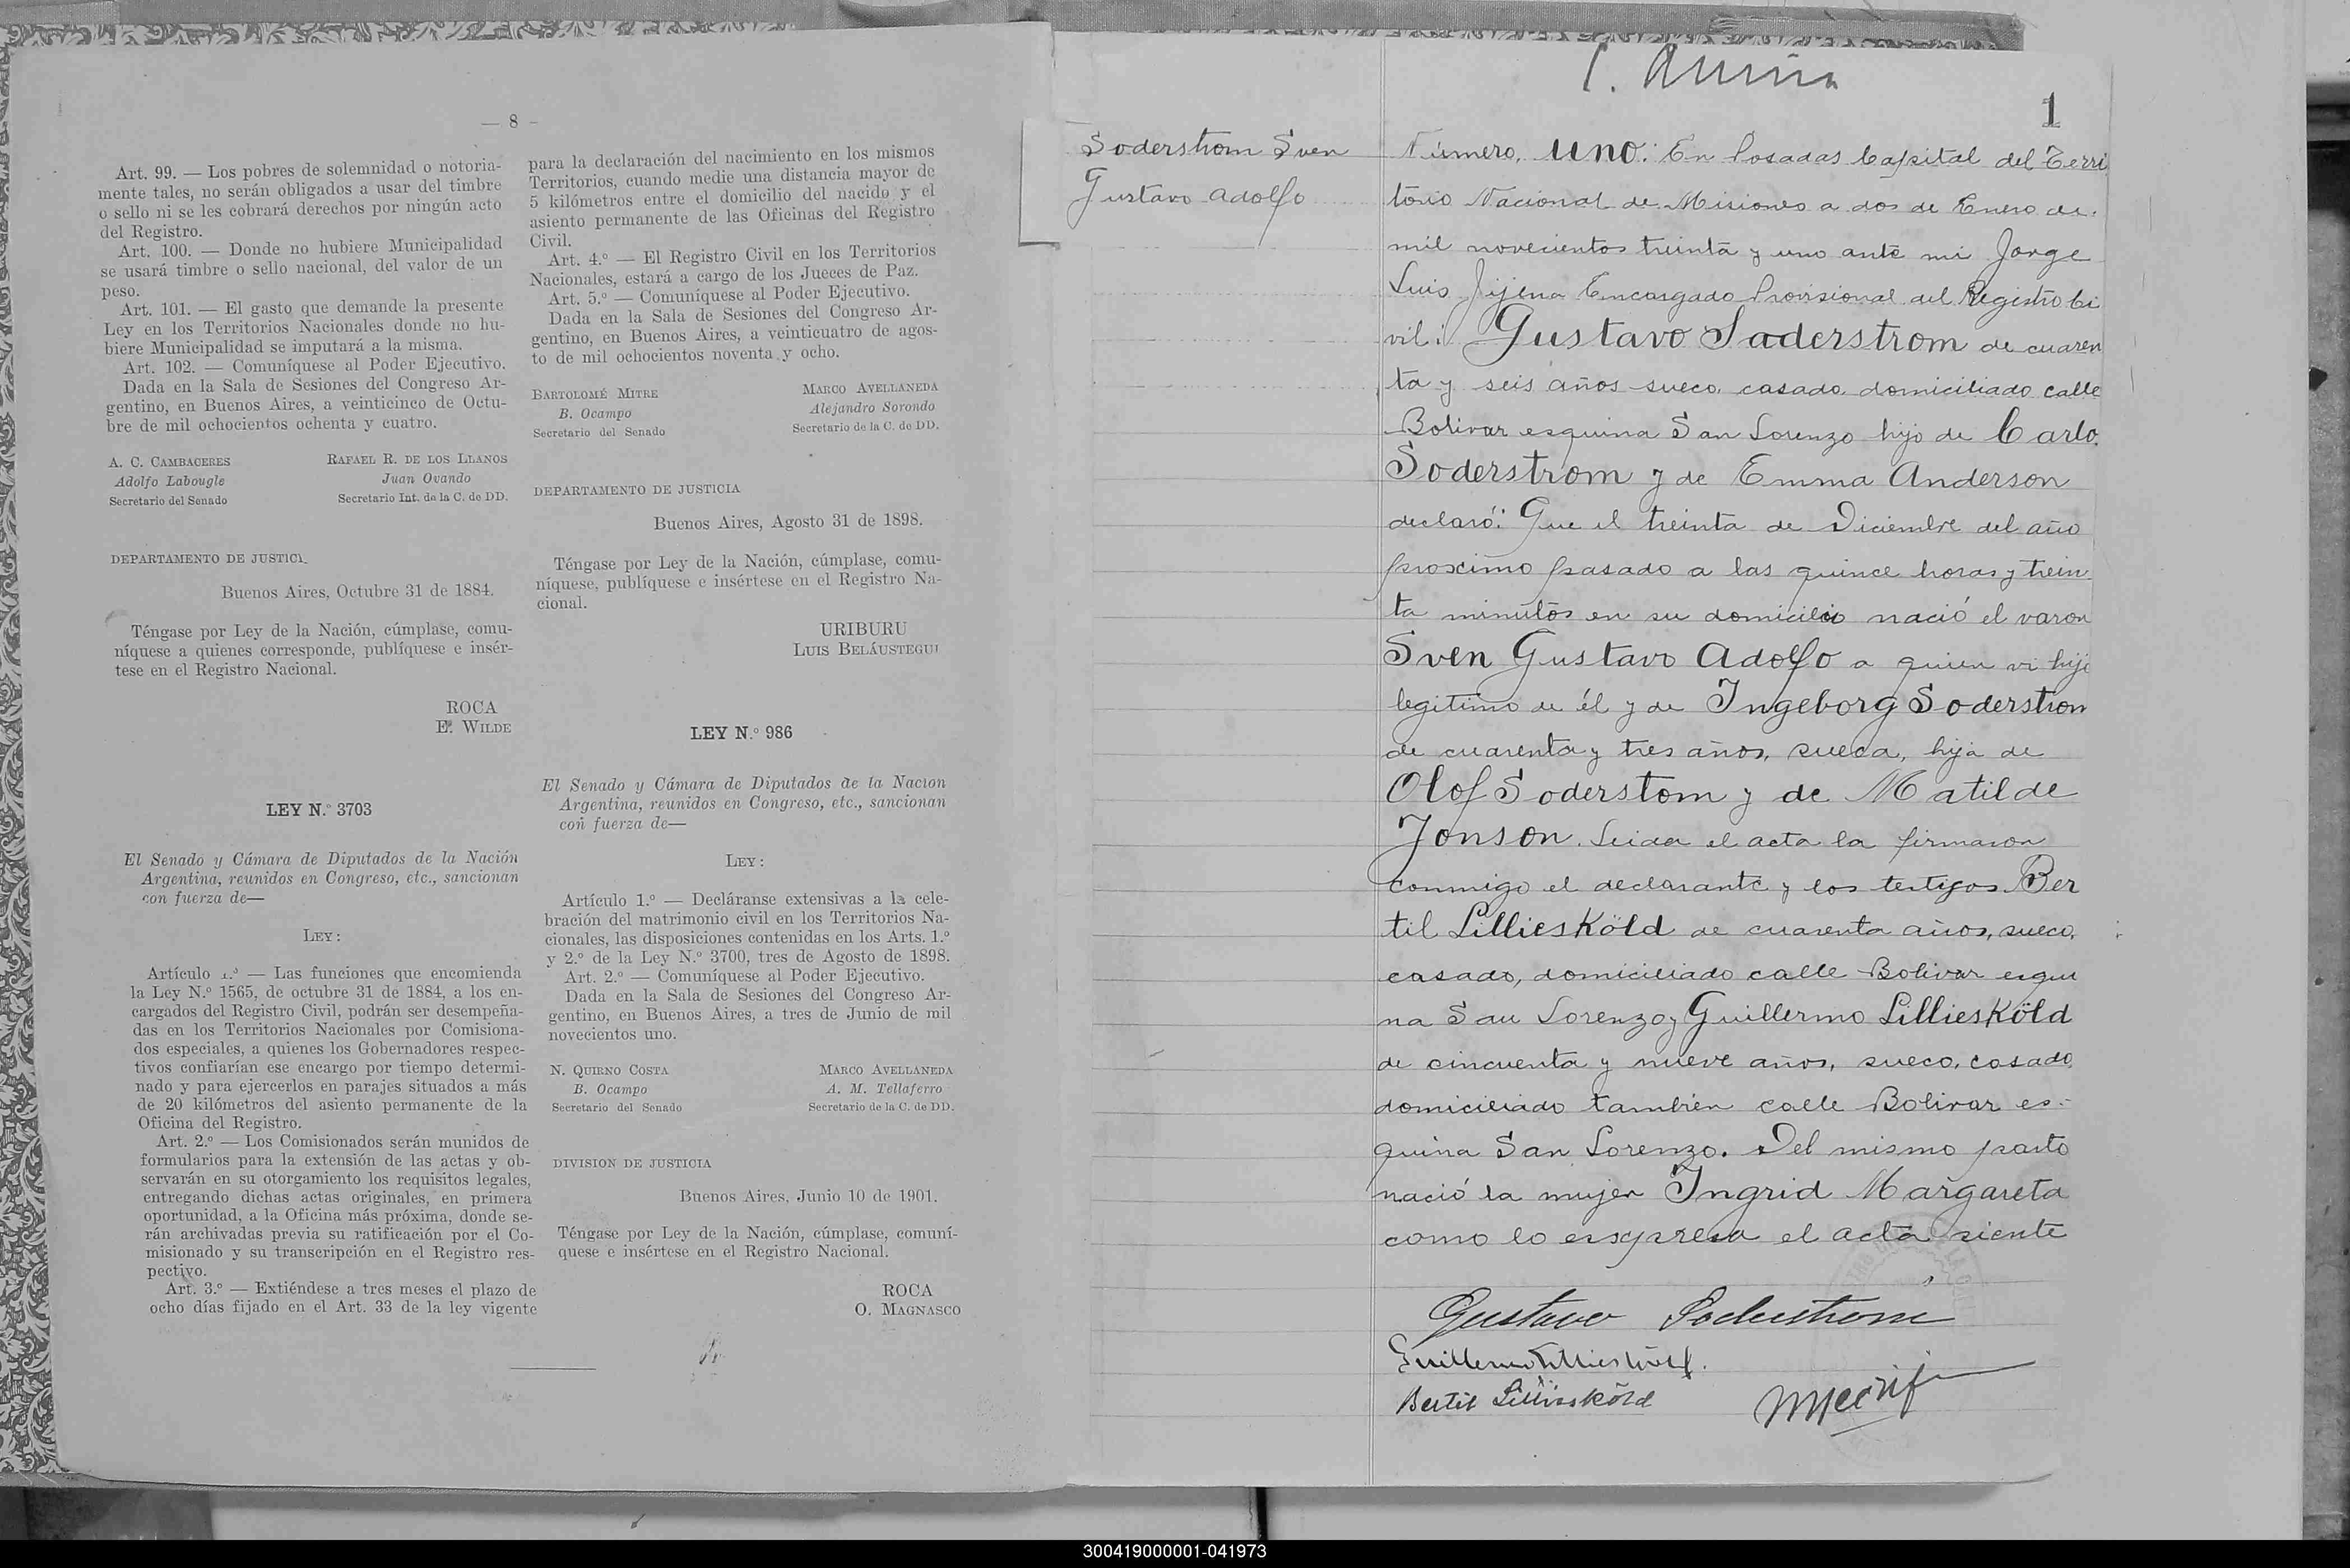 — 8 —
Art. 99. — Los pobres de solemnidad o notoria-
mente tales, no serán obligados a usar del timbre
o sello ni se les cobrará derechos por ningún acto
del Registro.
Art. 100. — Donde no hubiere Municipalidad
se usará timbre o sello nacional, del valor de un
peso.
Art. 101. — El gasto que demande la presente
Ley en los Territorios Nacionales donde no hu-
biere Municipalidad se imputará a la misma.
Art. 102. — Comuníquese al Poder Ejecutivo.
Dada en la Sala de Sesiones del Congreso Ar-
gentino, en Buenos Aires, a veinticinco de Octu-
bre de mil ochocientos ochenta y cuatro.
A. C. CAMBACERES RAFAEL R. DE LOS LLANOS
Adolfo Labougle Juan Ovando
Secretario del Senado Secretario Int. de la C. de DD.
DEPARTAMENTO DE JUSTICI
Buenos Aires, Octubre 31 de 1884.
Téngase por Ley de la Nación, cúmplase, comu-
níquese a quienes corresponde, publíquese e insér-
tese en el Registro Nacional.
ROCA
E. WILDE
LEY N.º 3703
El Senado y Cámara de Diputados de la Nación
Argentina, reunidos en Congreso, etc., sancionan
con fuerza de—
LEY:
Artículo 1.º — Las funciones que encomienda
la Ley N.º 1565, de octubre 31 de 1884, a los en-
cargados del Registro Civil, podrán ser desempeña-
das en los Territorios Nacionales por Comisiona-
dos especiales, a quienes los Gobernadores respec-
tivos confiarían ese encargo por tiempo determi-
nado y para ejercerlos en parajes situados a más
de 20 kilómetros del asiento permanente de la
Oficina del Registro.
Art. 2.º — Los Comisionados serán munidos de
formularios para la extensión de las actas y ob-
servarán en su otorgamiento los requisitos legales,
entregando dichas actas originales, en primera
oportunidad, a la Oficina más próxima, donde se-
rán archivadas previa su ratificación por el Co-
misionado y su transcripción en el Registro res-
pectivo.
Art. 3.º — Extiéndese a tres meses el plazo de
ocho días fijado en el Art. 33 de la ley vigente
para la declaración del nacimiento en los mismos
Territorios, cuando medie una distancia mayor de
5 kilómetros entre el domicilio del nacido y el
asiento permanente de las Oficinas del Registro
Civil.
Art. 4.º — El Registro Civil en los Territorios
Nacionales, estará a cargo de los Jueces de Paz.
Art. 5.º — Comuníquese al Poder Ejecutivo.
Dada en la Sala de Sesiones del Congreso Ar-
gentino, en Buenos Aires, a veinticuatro de agos-
to de mil ochocientos noventa y ocho.
BARTOLOMÉ MITRE MARCO AVELLANEDA
B. Ocampo Alejandro Sorondo
Secretario del Senado Secretario de la C. de DD.
DEPARTAMENTO DE JUSTICIA
Buenos Aires, Agosto 31 de 1898.
Téngase por Ley de la Nación, cúmplase, comu-
níquese, publíquese e insértese en el Registro Na-
cional.
URIBURU
LUIS BELÁUSTEGUI
LEY N.º 986
El Senado y Cámara de Diputados de la Nacion
Argentina, reunidos en Congreso, etc., sancionan
con fuerza de—
LEY:
Artículo 1.º — Decláranse extensivas a la cele-
bración del matrimonio civil en los Territorios Na-
cionales, las disposiciones contenidas en los Arts. 1.º
y 2.º de la Ley N.º 3700, tres de Agosto de 1898.
Art. 2.º — Comuníquese al Poder Ejecutivo.
Dada en la Sala de Sesiones del Congreso Ar-
gentino, en Buenos Aires, a tres de Junio de mil
novecientos uno.
N. QUIRNO COSTA MARCO AVELLANEDA
B. Ocampo A. M. Tellaferro
Secretario del Senado Secretario de la C. de DD.
DIVISION DE JUSTICIA
Buenos Aires, Junio 10 de 1901.
Téngase por Ley de la Nación, cúmplase, comuní-
quese e insértese en el Registro Nacional.
ROCA
O. MAGNASCO
1
Soderstrom Sven
Gustavo Adolfo
Número, uno: En Posadas Capital del Terri
torio Nacional de Misiones a dos de Enero de
mil novecientos treinta y uno ante mi Jorge
Luis Jijena Encargado Provisional del Registro Ci
vil: Gustavo Saderstrom de cuaren
ta y seis años sueco, casado, domiciliado calle
Bolivar esquina San Lorenzo hijo de Carlo
Soderstrom y de Emma Anderson
declaró: Que el treinta de Diciembre del año
proximo pasado a las quince horas y trein
ta minutos en su domicilio nació el varon
Sven Gustavo Adolfo a quien vi hijo
legitimo de él y de Ingeborg Soderstron
de cuarenta y tres años, sueca, hija de
Olof Soderstom y de Matilde
Jonson. Leida el acta la firmaron
conmigo el declarante y los testigos Ber
til Lillieskóld de cuarenta años, sueco,
casado, domiciliado calle Bolivar esqui
na San Lorenzo y Guillermo Lillieskóld
de cincuenta y nueve años, sueco, casado,
domiciliado también calle Bolivar es-
quina San Lorenzo. Del mismo parto
nació la mujer Ingrid Margareta
como lo expresa el acta siente
Gustavo Soderstrom
Guillermo Lillieskōld.
Bertil Lillieskōld
300419000001-041973